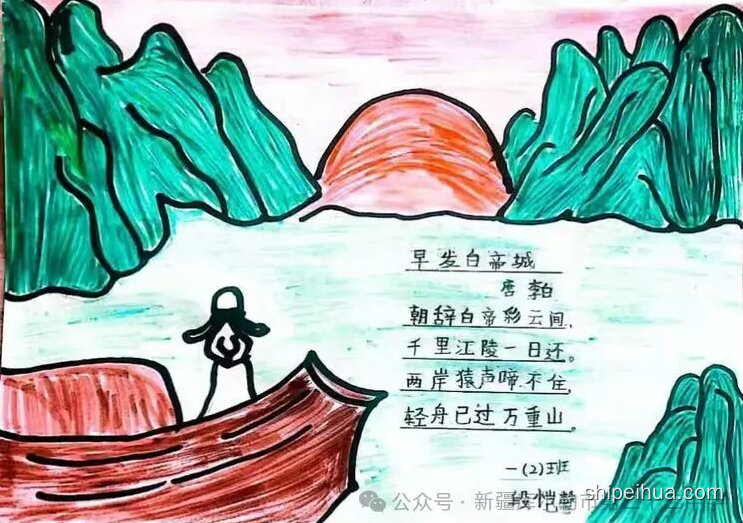 早发白帝城
唐 李白
朝辞白帝彩云间,
千里江陵一日还。
两岸猿声啼不住,
轻舟已过万重山。
一(2)班
段恺
公众号·新疆
shipeihua.com